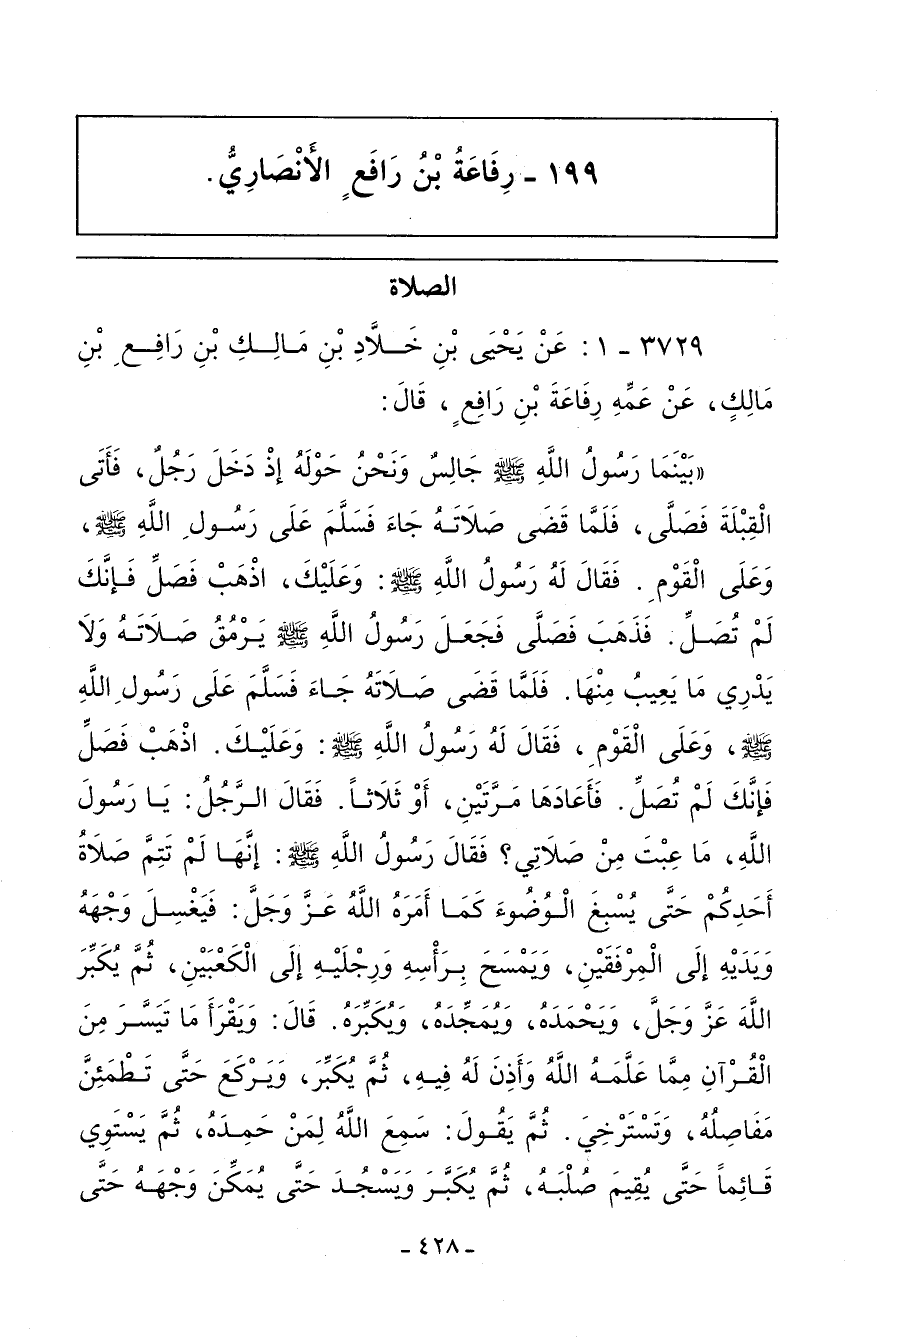 ١٩٩ - رِفَاعَةُ بْنُ رَافَعٍ الأَنْصَارِيُّ.
الصلاة
٣٧٢٩ - ١: عَنْ يَحْيَى بْنِ خَلَّادِ بْنِ مَالِكِ بْنِ رَافِعِ بْنِ
مَالِكٍ، عَنْ عَمِّهِ رِفَاعَةَ بْنِ رَافِعٍ، قَالَ:
«بَيْنَمَا رَسُولُ اللَّهِ ﷺ جَالِسٌ وَنَحْنُ حَوْلَهُ إِذْ دَخَلَ رَجُلٌ، فَأَتَى
الْقِبْلَةَ فَصَلَّى، فَلَمَّا قَضَى صَلَاتَهُ جَاءَ فَسَلَّمَ عَلَى رَسُولِ اللَّهِ ﷺ،
وَعَلَى الْقَوْمِ. فَقَالَ لَهُ رَسُولُ اللَّهِ ﷺ: وَعَلَيْكَ، اذْهَبْ فَصَلِّ فَإِنَّكَ
لَمْ تُصَلِّ. فَذَهَبَ فَصَلَّى فَجَعَلَ رَسُولُ اللَّهِ ﷺ يَرْمُقُ صَلَاتَهُ وَلَا
يَدْرِي مَا يَعِيبُ مِنْهَا. فَلَمَّا قَضَى صَلَاتَهُ جَاءَ فَسَلَّمَ عَلَى رَسُولِ اللَّهِ
ﷺ، وَعَلَى الْقَوْمِ، فَقَالَ لَهُ رَسُولُ اللَّهِ ﷺ: وَعَلَيْكَ. اذْهَبْ فَصَلِّ
فَإِنَّكَ لَمْ تُصَلِّ. فَأَعَادَهَا مَرَّتَيْنِ، أَوْ ثَلَاثاً. فَقَالَ الرَّجُلُ: يَا رَسُولَ
اللَّهِ، مَا عِبْتَ مِنْ صَلَاتِي؟ فَقَالَ رَسُولُ اللَّهِ ﷺ: إِنَّهَا لَمْ تَتِمَّ صَلَاةُ
أَحَدِكُمْ حَتَّى يُسْبِغَ الْوُضُوءَ كَمَا أَمَرَهُ اللَّهُ عَزَّ وَجَلَّ: فَيَغْسِلَ وَجْهَهُ
وَيَدَيْهِ إِلَى الْمِرْفَقَيْنِ، وَيَمْسَحَ بِرَأْسِهِ وَرِجْلَيْهِ إِلَى الْكَعْبَيْنِ، ثُمَّ يُكَبِّرَ
اللَّهَ عَزَّ وَجَلَّ، وَيَحْمَدَهُ، وَيُمَجِّدَهُ، وَيُكَبِّرَهُ. قَالَ: وَيَقْرَأَ مَا تَيَسَّرَ مِنَ
الْقُرْآنِ مِمَّا عَلَّمَهُ اللَّهُ وَأَذِنَ لَهُ فِيهِ، ثُمَّ يُكَبِّرَ، وَيَرْكَعَ حَتَّى تَطْمَئِنَّ
مَفَاصِلُهُ، وَتَسْتَرْخِيَ. ثُمَّ يَقُولَ: سَمِعَ اللَّهُ لِمَنْ حَمِدَهُ، ثُمَّ يَسْتَوِي
قَائِماً حَتَّى يُقِيمَ صُلْبَهُ، ثُمَّ يُكَبِّرَ وَيَسْجُدَ حَتَّى يُمَكِّنَ وَجْهَهُ حَتَّى
- ٤٢٨ -